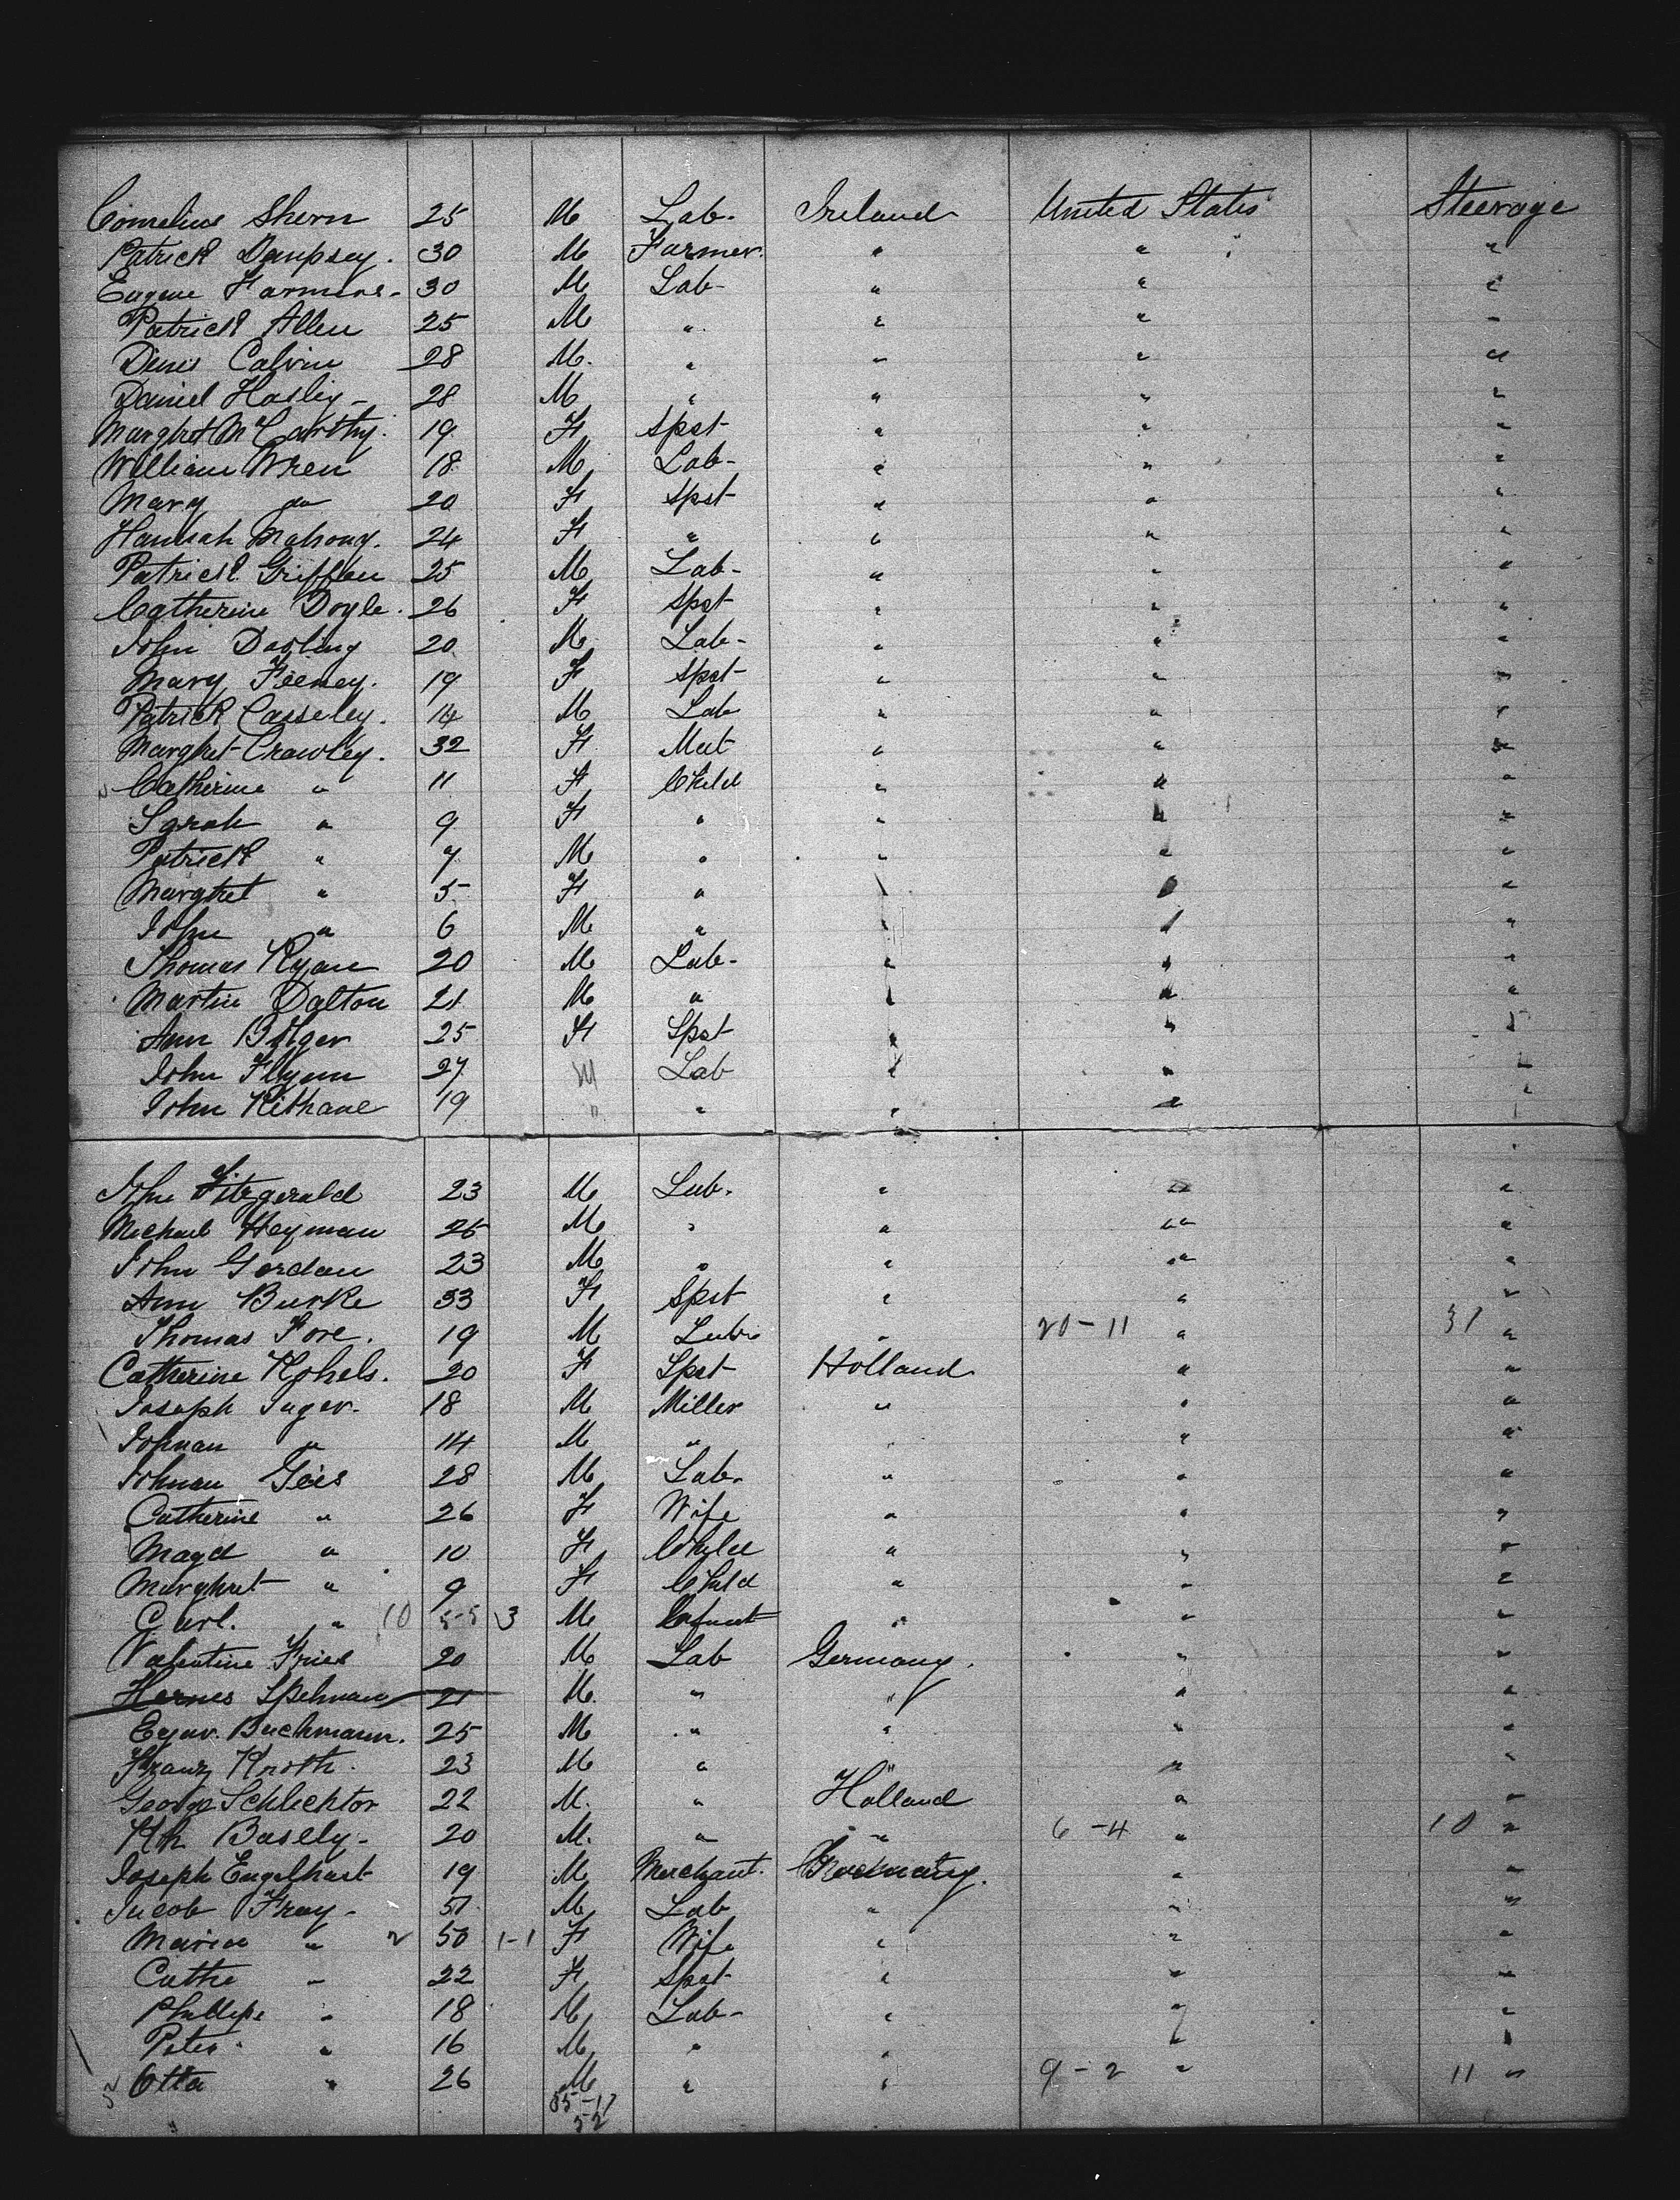 Cornelius Shern 25 M Lab. Ireland United States Steerage
Patrick Dempsey. 30 M Farmer. " " "
Eugene 30 M Lab- " " "
Patrick Allen 25 M " " " "
Denis Calvin 28 M. " " " "
Daniel Hasley- 28 M " " " "
Marghret McCarthy. 19 F Spst " " "
William Wren 18 M Lab- " " "
Mary do 20 F Spst " " "
Hannah Mahony. 24 F " " " "
Patrick Griffen 25 M Lab- " " "
Catherine Doyle. 26 F Spst " " "
John Darling 20 M Lab- " " "
Mary Feeney. 19 F Spst- " " "
Patrick Casseley. 14 M Lab " " "
Marghret Crowley. 32 F Mat " " "
Catherine " 11 F Child " " "
Sarah " 9 F " " " "
Patrick " 7 M " " " "
Marghret " 5- F " " " "
John " 6 M " " " "
Thomas Ryan 20 M Lab- " " "
Martin Dalton 21 M " " " "
Ann Bolger 25 F Spst " " "
John Flynn 27 M Lab " " "
John Kithane 19 " " " " "
John Fitzgerald 23 M Lab. " " "
Michael Heyman 25 M " " " "
John Gordan 23 M " " " "
Ann Burke 33 F Spst " " "
Thomas Fore. 19 M Lab " 20-11 " 31 "
Catherine Kohels. 20 F Spst Holland " "
Joseph Juger. 18 M Miller " " "
Johnan " 14 M " " " "
Johnan Geis 28 M Lab. " " "
Catherine " 26 F Wife " " "
Magd " 10 F Child " " "
Marghret " 9 F Child " " "
Carl. " 10 5-5 3 M Infant " " "
Valentine Fries 20 M Lab Germany. " "
Hernes Spelman 21 M. " " " "
Buchmann. 25 M " " " "
Franz Knoth. 23 M " " " "
George Schlechtor 22 M. " Holland " "
Basely- 20 M. " " 6-4 " 10 "
Joseph Engelhart 19 M Merchant. Germany. " "
Jacob Fray- 51 M Lab " " "
Maria " 2 50 1-1 F Wife " " "
Cathe " 22 F Spst- " " "
Phillipe " 18 M Lab- " " "
Peter " 16 M " " " "
Otta " 26 M " " 9-2 " 11 "
35-17
52